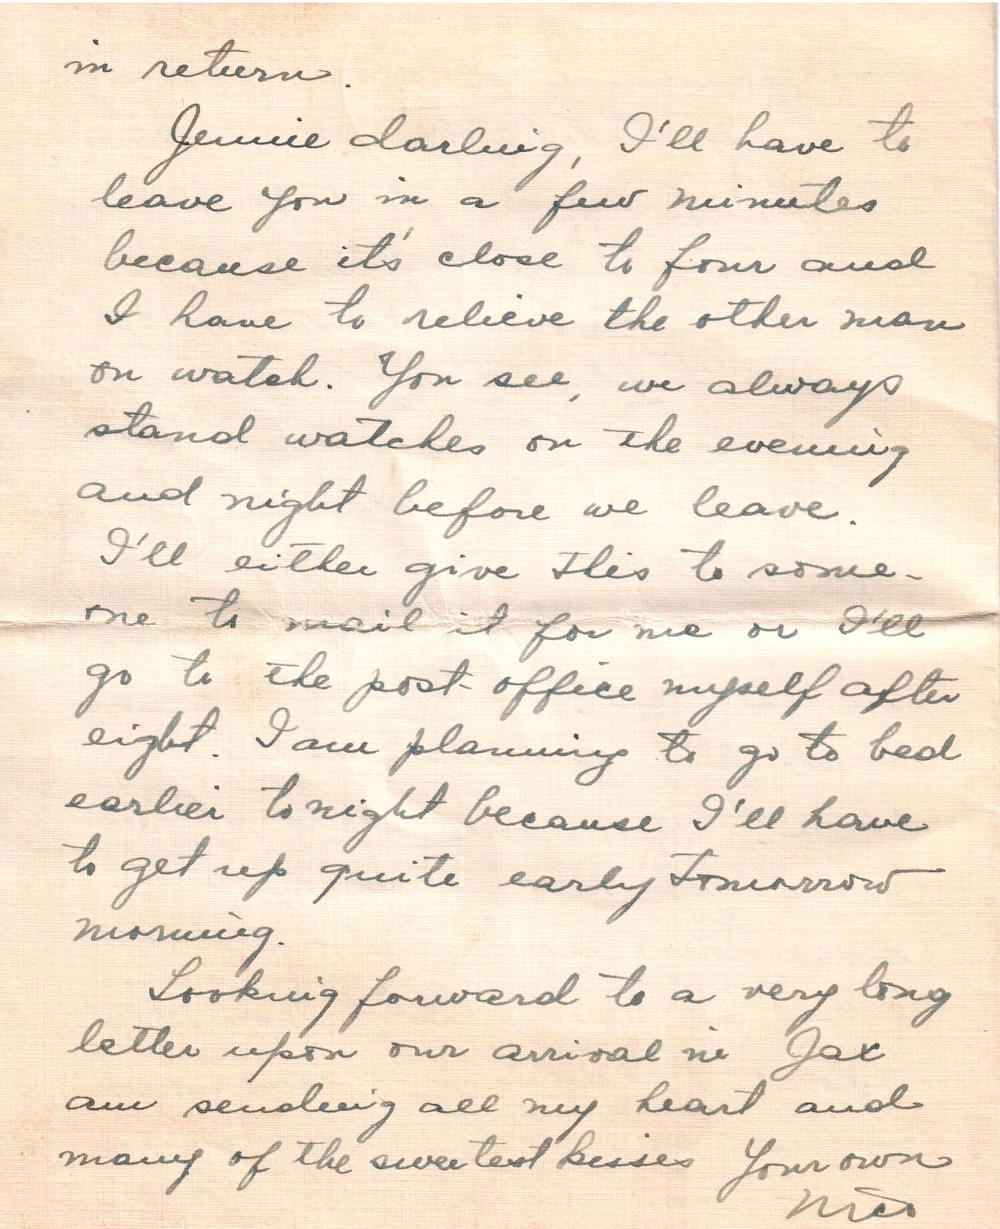 in return.
Jennie darling, I'll have to
leave you in a few minutes
because it's close to four and
I have to relieve the other man
on watch. You see, we always
stand watches on the evening
and night before we leave.
I'll either give this to some-
one to mail it for me or I'll
go to the post-office myself after
eight. I am planning to go to bed
earlier tonight because I'll have
to get up quite early tomorrow
morning.
Looking forward to a very long
letter upon our arrival in Jax
am sending all my heart and
many of the sweetest kisses Your own